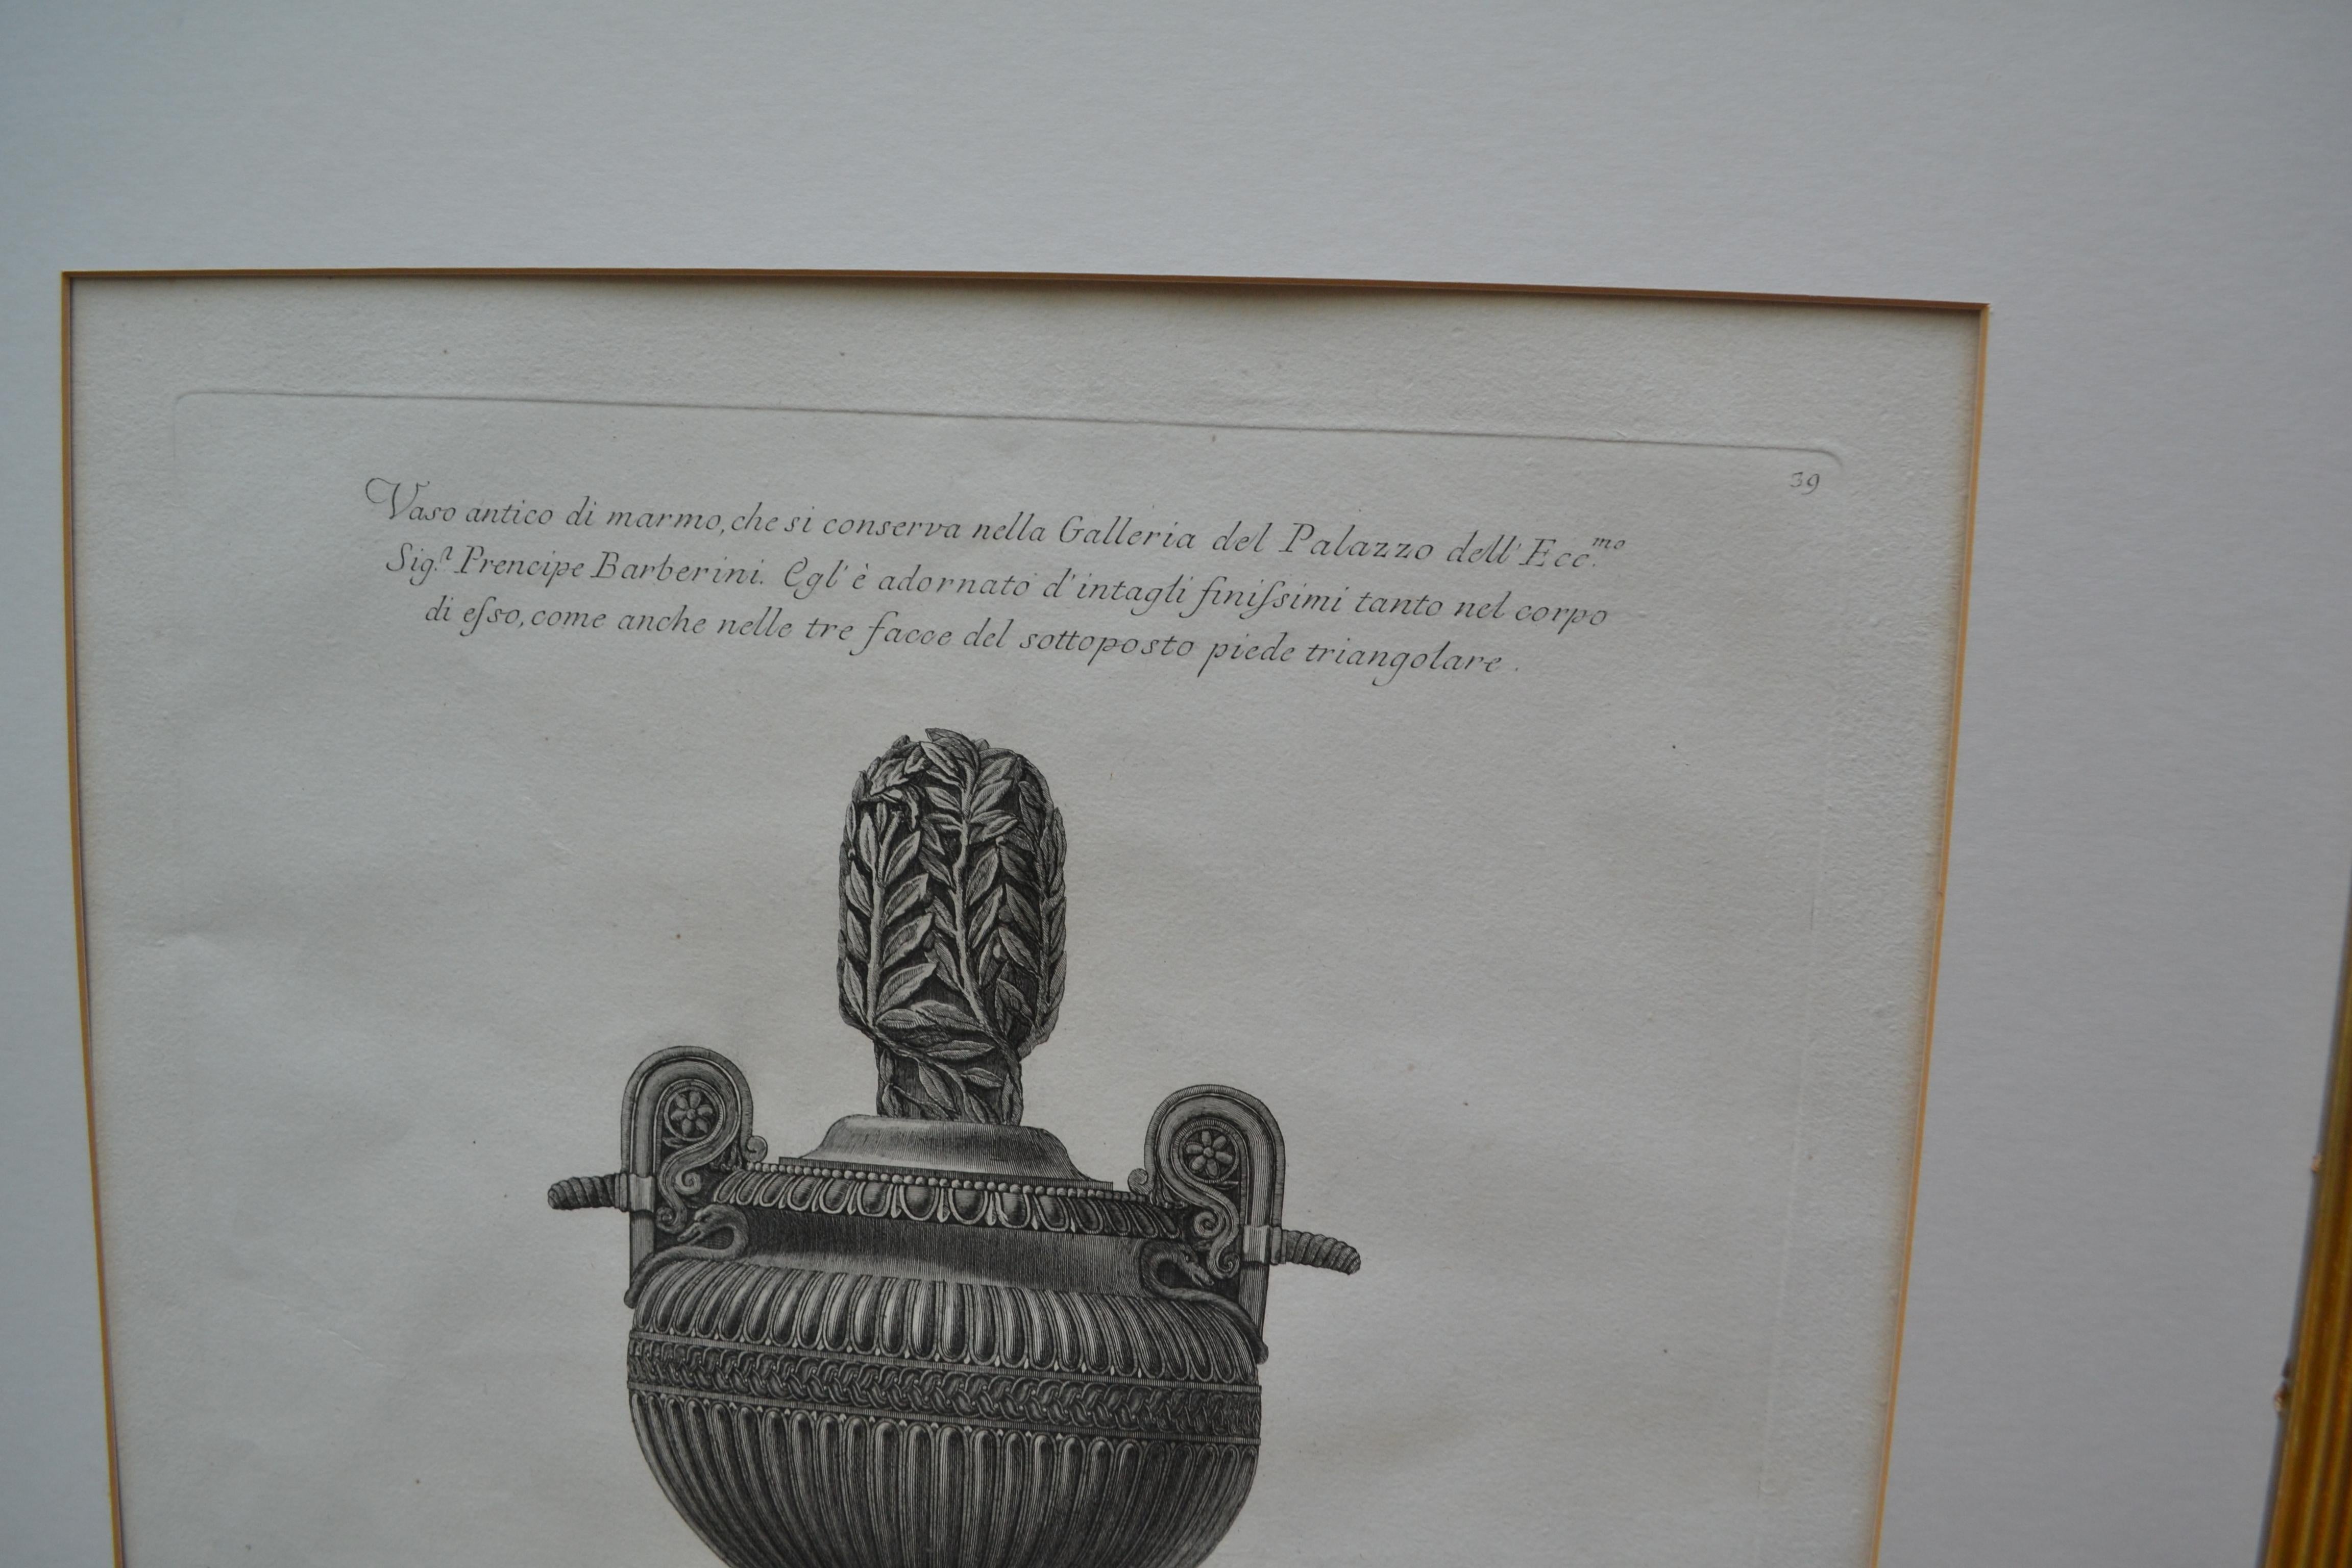 39
Vaso antico di marmo, che si conserva nella Galleria del Palazzo dell' Ecc.mo
Sig.r Prencipe Barberini. Egl' è adornato d'intagli finiſsimi tanto nel corpo
di eſso, come anche nelle tre facce del sottoposto piede triangolare.